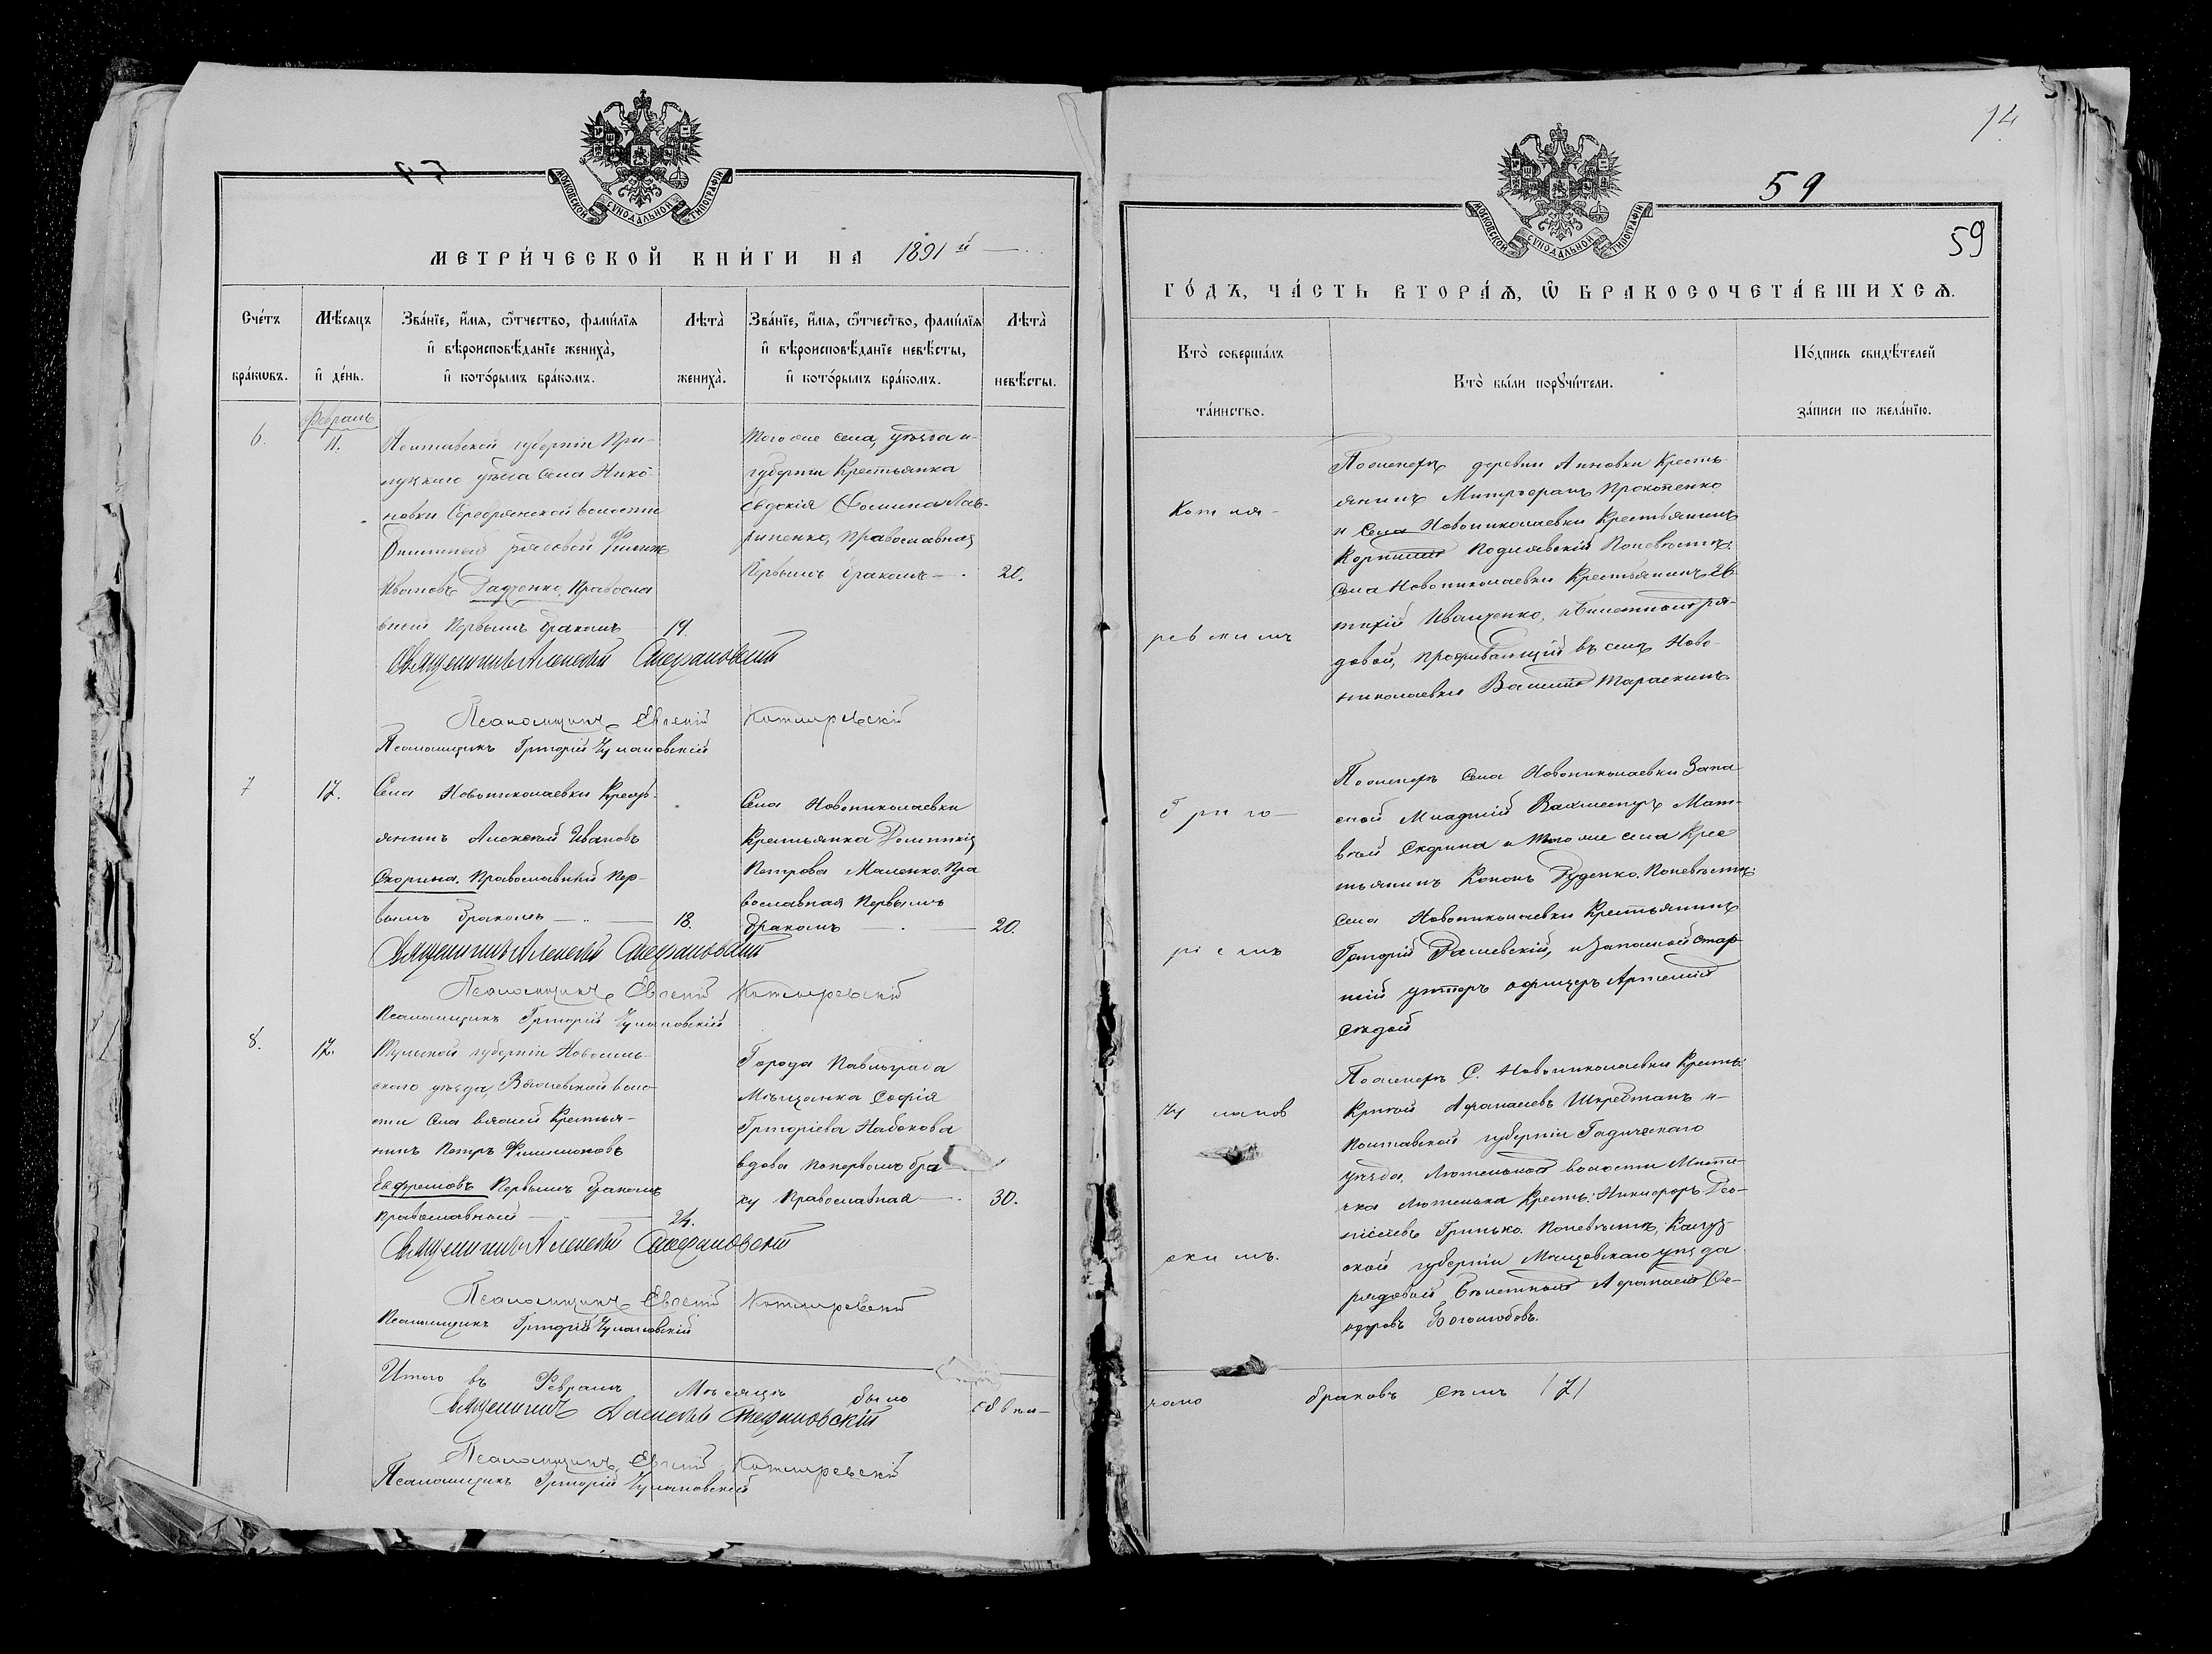 54
МОСКОВСКОЙ СѴНОДАЛЬНОЙ ТИПОГРАФІИ
МЕТРИ́ЧЕСКОЙ КНИ́ГИ НА 1891 й
Сче́тъ бра́кѡвъ.
Мѣ́сяцъ и҆ де́нь.
Зва́нїе, и҆́мѧ, ѻ҆́тчество, фами́лїѧ
и҆ вѣроисповѣ́данїе жениха̀,
и҆ кото́рымъ бра́комъ.
Лѣта̀ жениха̀.
Зва́нїе, и҆́мѧ, ѻ҆́тчество, фами́лїѧ
и҆ вѣроисповѣ́данїе невѣ́сты,
и҆ кото́рымъ бра́комъ.
Лѣта̀ невѣ́сты.
Февраль
6.
11.
Полтавской губерніи При-
луцкаго уѣзда Села Нико-
новки Серебрянской волости
Билетный рядовой Филипъ
Ивановъ Радченко, Правосла
вный Первымъ бракомъ
19.
Того же села, уѣзда и
губерніи Крестьянка
Евдокія Фомина Лав-
риненко, Православная
Первымъ бракомъ
21.
Священникъ Алексей Стефановскій
Псаломщикъ Евгеній Котляревскій
Псаломщикъ Григорій Чулановскій
7
17.
Села Новониколаевки Крест-
янинъ Алексей Ивановъ
Скорина. Православный Пер-
вымъ бракомъ
18.
Села Новониколаевки
Крестьянка Домникія
Петрова Маленко. Пра
вославная Первымъ
бракомъ
20.
Священникъ Алексей Стефановскій
Псаломщикъ Евгеній Котляревскій
Псаломщикъ Григорій Чулановскій
8.
17.
Тульской губерніи Новосиль-
скаго уѣзда, воло-
сти Села Крестья-
нинъ Петръ Филимоновъ
Евфремовъ Первымъ бракомъ
Православный
24.
Города Павлограда
Мѣщанка Софія
Григоріева Набокова
вдова по первомъ бра
ку Православная
30.
Священникъ Алексей Стефановскій
Псаломщикъ Евгеній Котляревскій
Псаломщикъ Григорій Чулановскій
Итого въ Февралѣ Мѣсяцѣ было повѣн-
Священникъ Алексей Стефановскій
Псаломщикъ Евгеній Котляревскій
Псаломщикъ Григорій Чулановскій
14
59
59
МОСКОВСКОЙ СѴНОДАЛЬНОЙ ТИПОГРАФІИ
ГО́ДЪ, ЧА́СТЬ ВТОРА́Ѧ, Ѡ҆ БРАКОСОЧЕТА́ВШИХСѦ.
Кто̀ соверша́лъ
та́инство.
Кто̀ бы́ли порꙋчи́тели.
По́дпись свидѣ́телей
за́писи по жела́нїю.
Котля-
ревскимъ
По женихѣ деревни Анновки Кресть-
янинъ Митрофанъ Прокопенко
и Села Новониколаевки Крестьянинъ
Корнилій Поднявскій По невѣстѣ:
Села Новониколаевки Крестьянинъ Ев-
тихій Иващенко, и Билетный ря-
довой, проживающій въ селѣ Ново-
николаевки Василій Тараскинъ
Григо-
ріемъ
По женихѣ Села Новониколаевки Запа
сной Младшій Вахмистръ Мат-
вѣй Скорина и того же села Крес
тьянинъ Кононъ Руденко. По невѣстѣ:
Села Новониколаевки Крестьянинъ
Григорій Рашевскій, и Запасной стар-
шій унтеръ офицеръ Артемій
Сѣдой
Чуланов
скимъ.
По женихѣ С. Новониколаевки Крест:
Афанасьевъ и
Полтавской губерніи Гадячскаго
уѣзда, Лютенской волости Мѣсте-
чка Лютенька Крест: Никифоръ Део-
нисіевъ Гринько. По невѣстѣ, Калуж-
ской губерніи Мещовскаго уѣзда
рядовой Билетный Афанасій Фе-
одоровъ Боголюбовъ.
чано браковъ семь /7/